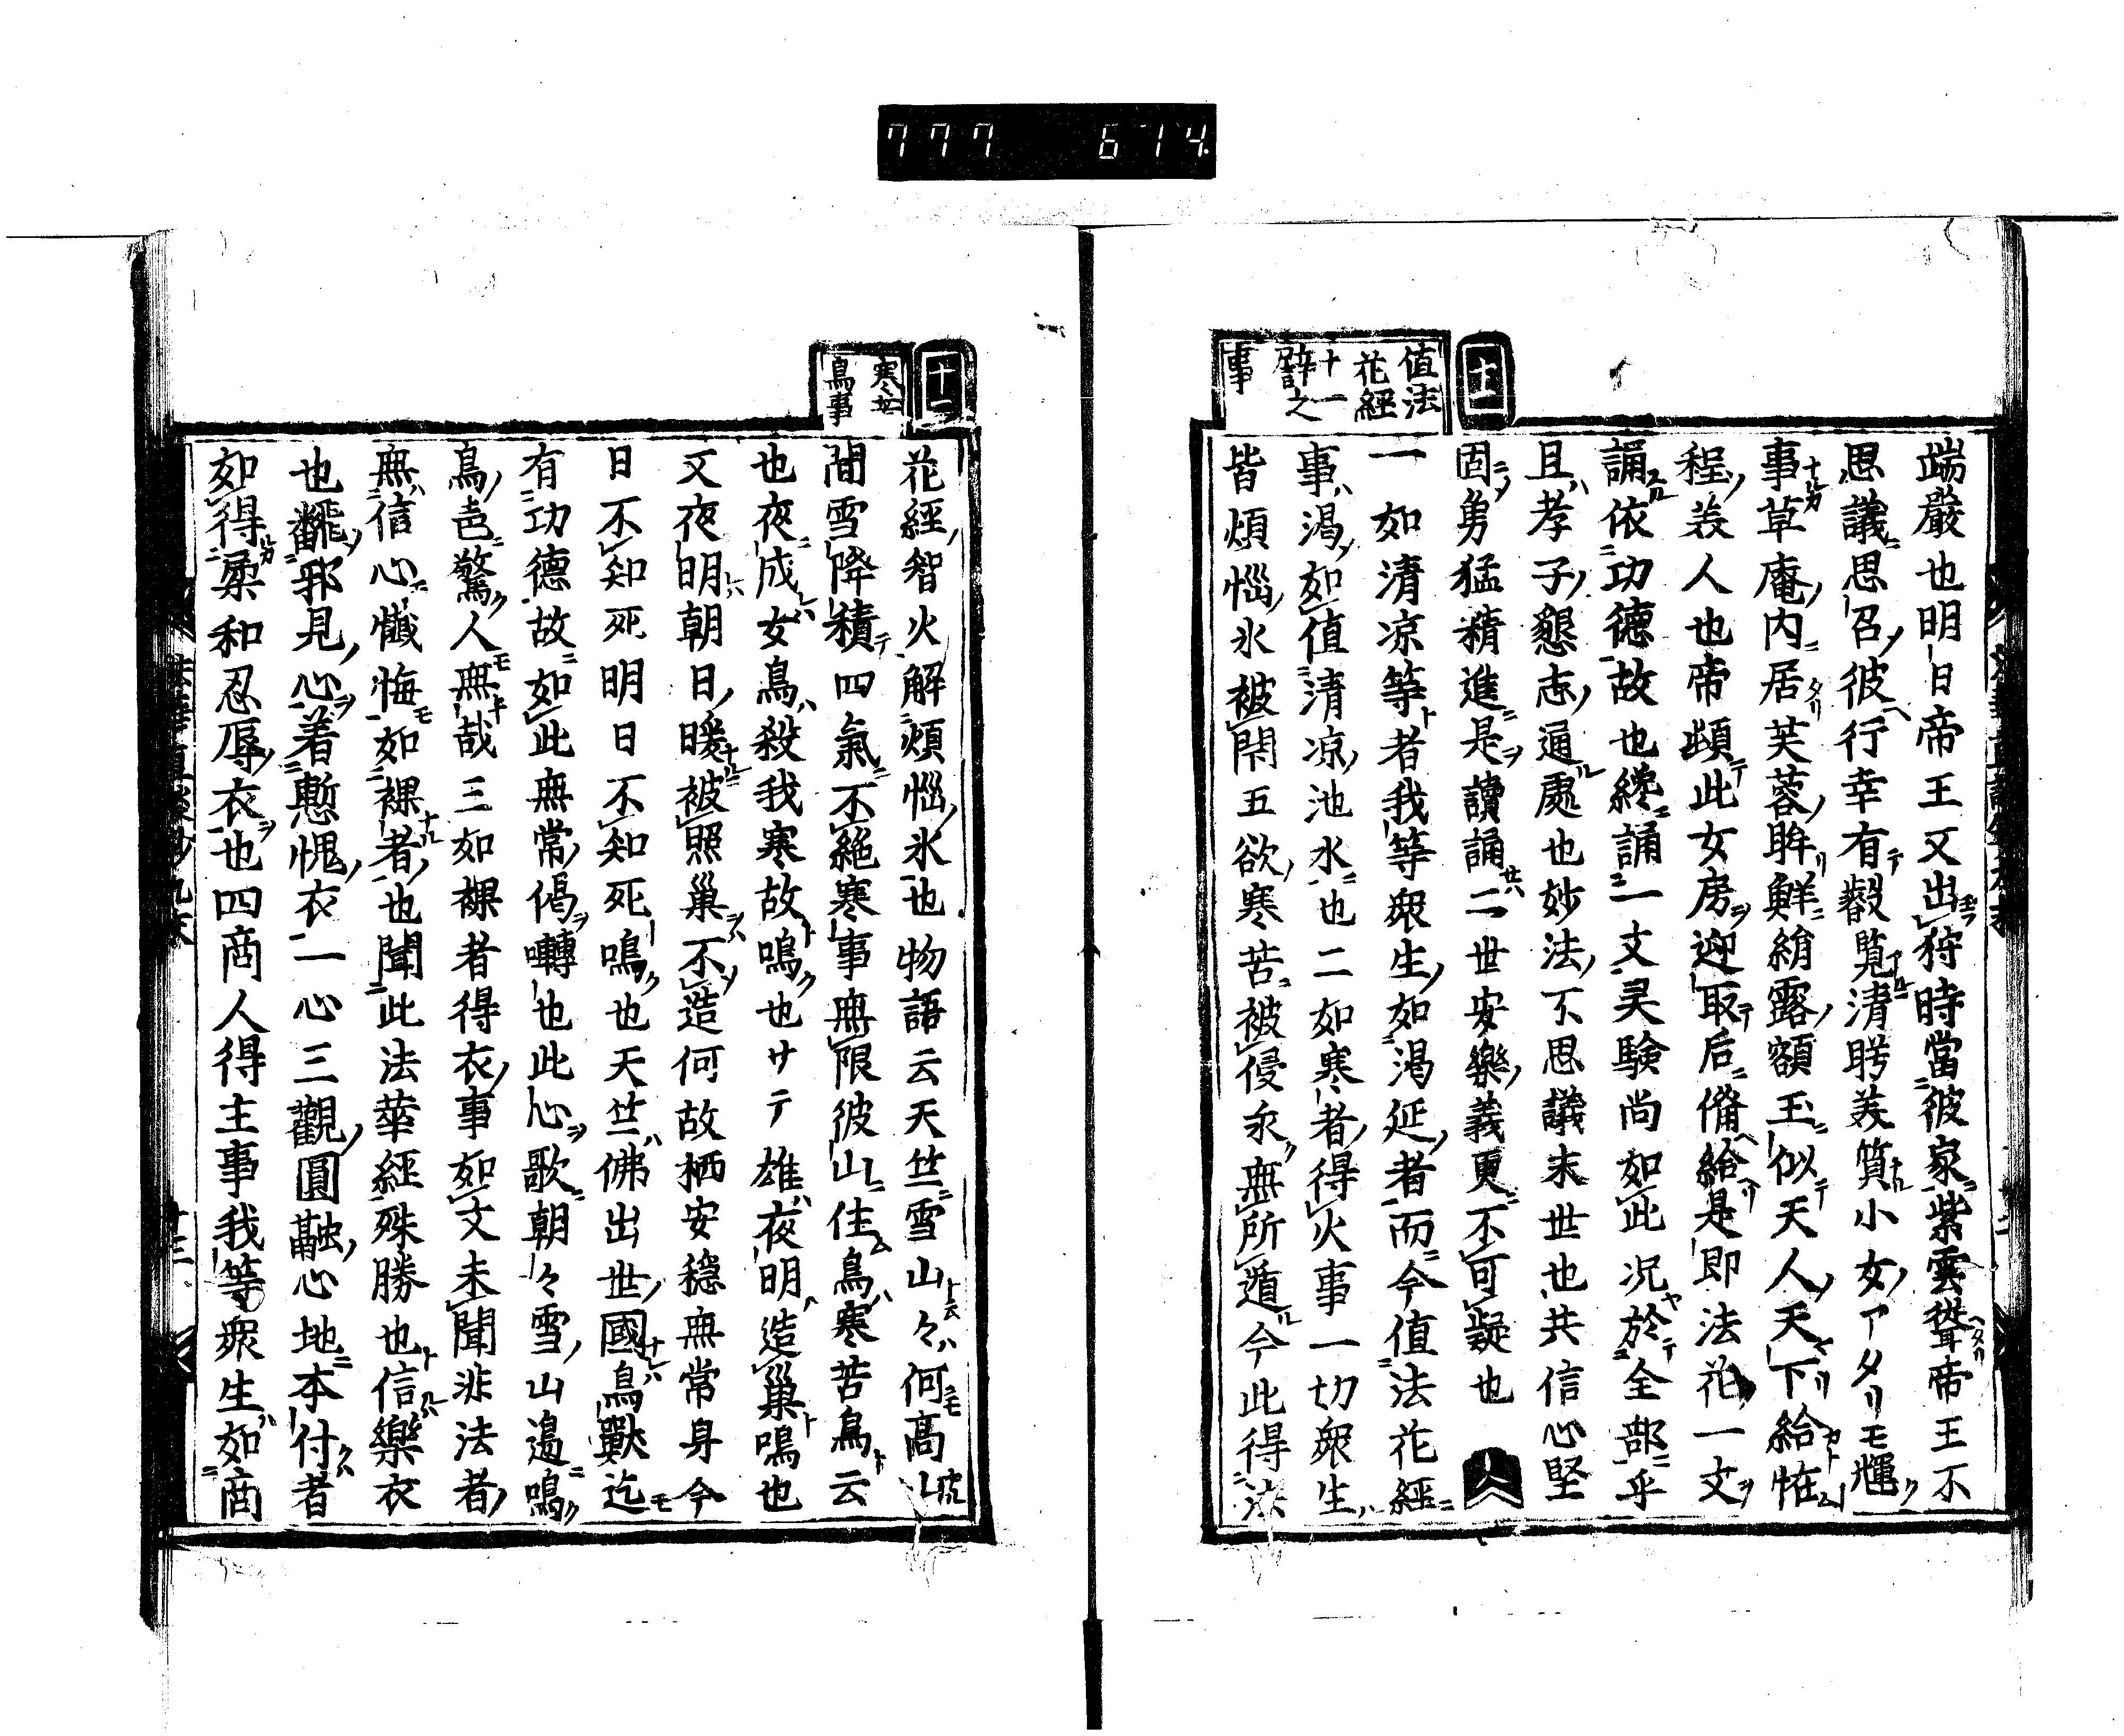 777 614
十二
値法
花經
十一
譬之
事
端嚴也明日帝王又出狩時當彼家紫雲聳帝王不
思議思召彼行幸有叡覧清眸美質小女アタリモ輝
事草庵内居芙蓉眸鮮綃露額玉似天人天下給恠
程美人也帝頻此女房迎取后備給是即法花一文
誦依功德故也纔誦一文灵驗尚如此况於全部乎
且孝子懇志通處也妙法不思議末世也共信心堅
固勇猛精進是讀誦二世安樂義更不可疑也
一如清凉等者我等衆生如渇延者而今値法花經
事渇如値清凉池水也二如寒者得火事一切衆生
皆煩惱氷被閇五欲寒苦被侵永無所遁今此得法
十一
寒苦
鳥事
花經智火解煩惱氷也物語云天竺雪山々何高山
間雪降積四氣不絶寒事無限彼山住鳥寒苦鳥云
也夜成女鳥殺我寒故鳴也サテ雄夜明造巢鳴也
又夜明朝日暖被照巢不造何故栖安穏無常身今
日不知死明日不知死鳴也天竺佛出世國鳥獸迄
有功德故如此無常偈囀也此心歌朝々雪山邉鳴
鳥色驚人無哉三如裸者得衣事如文未聞非法者
無信心懺悔如裸者也聞此法華經殊勝也信樂衣
也飜邪見心着慙愧衣一心三觀圓融心地本付者
如得柔和忍辱衣也四商人得主事我等衆生如商